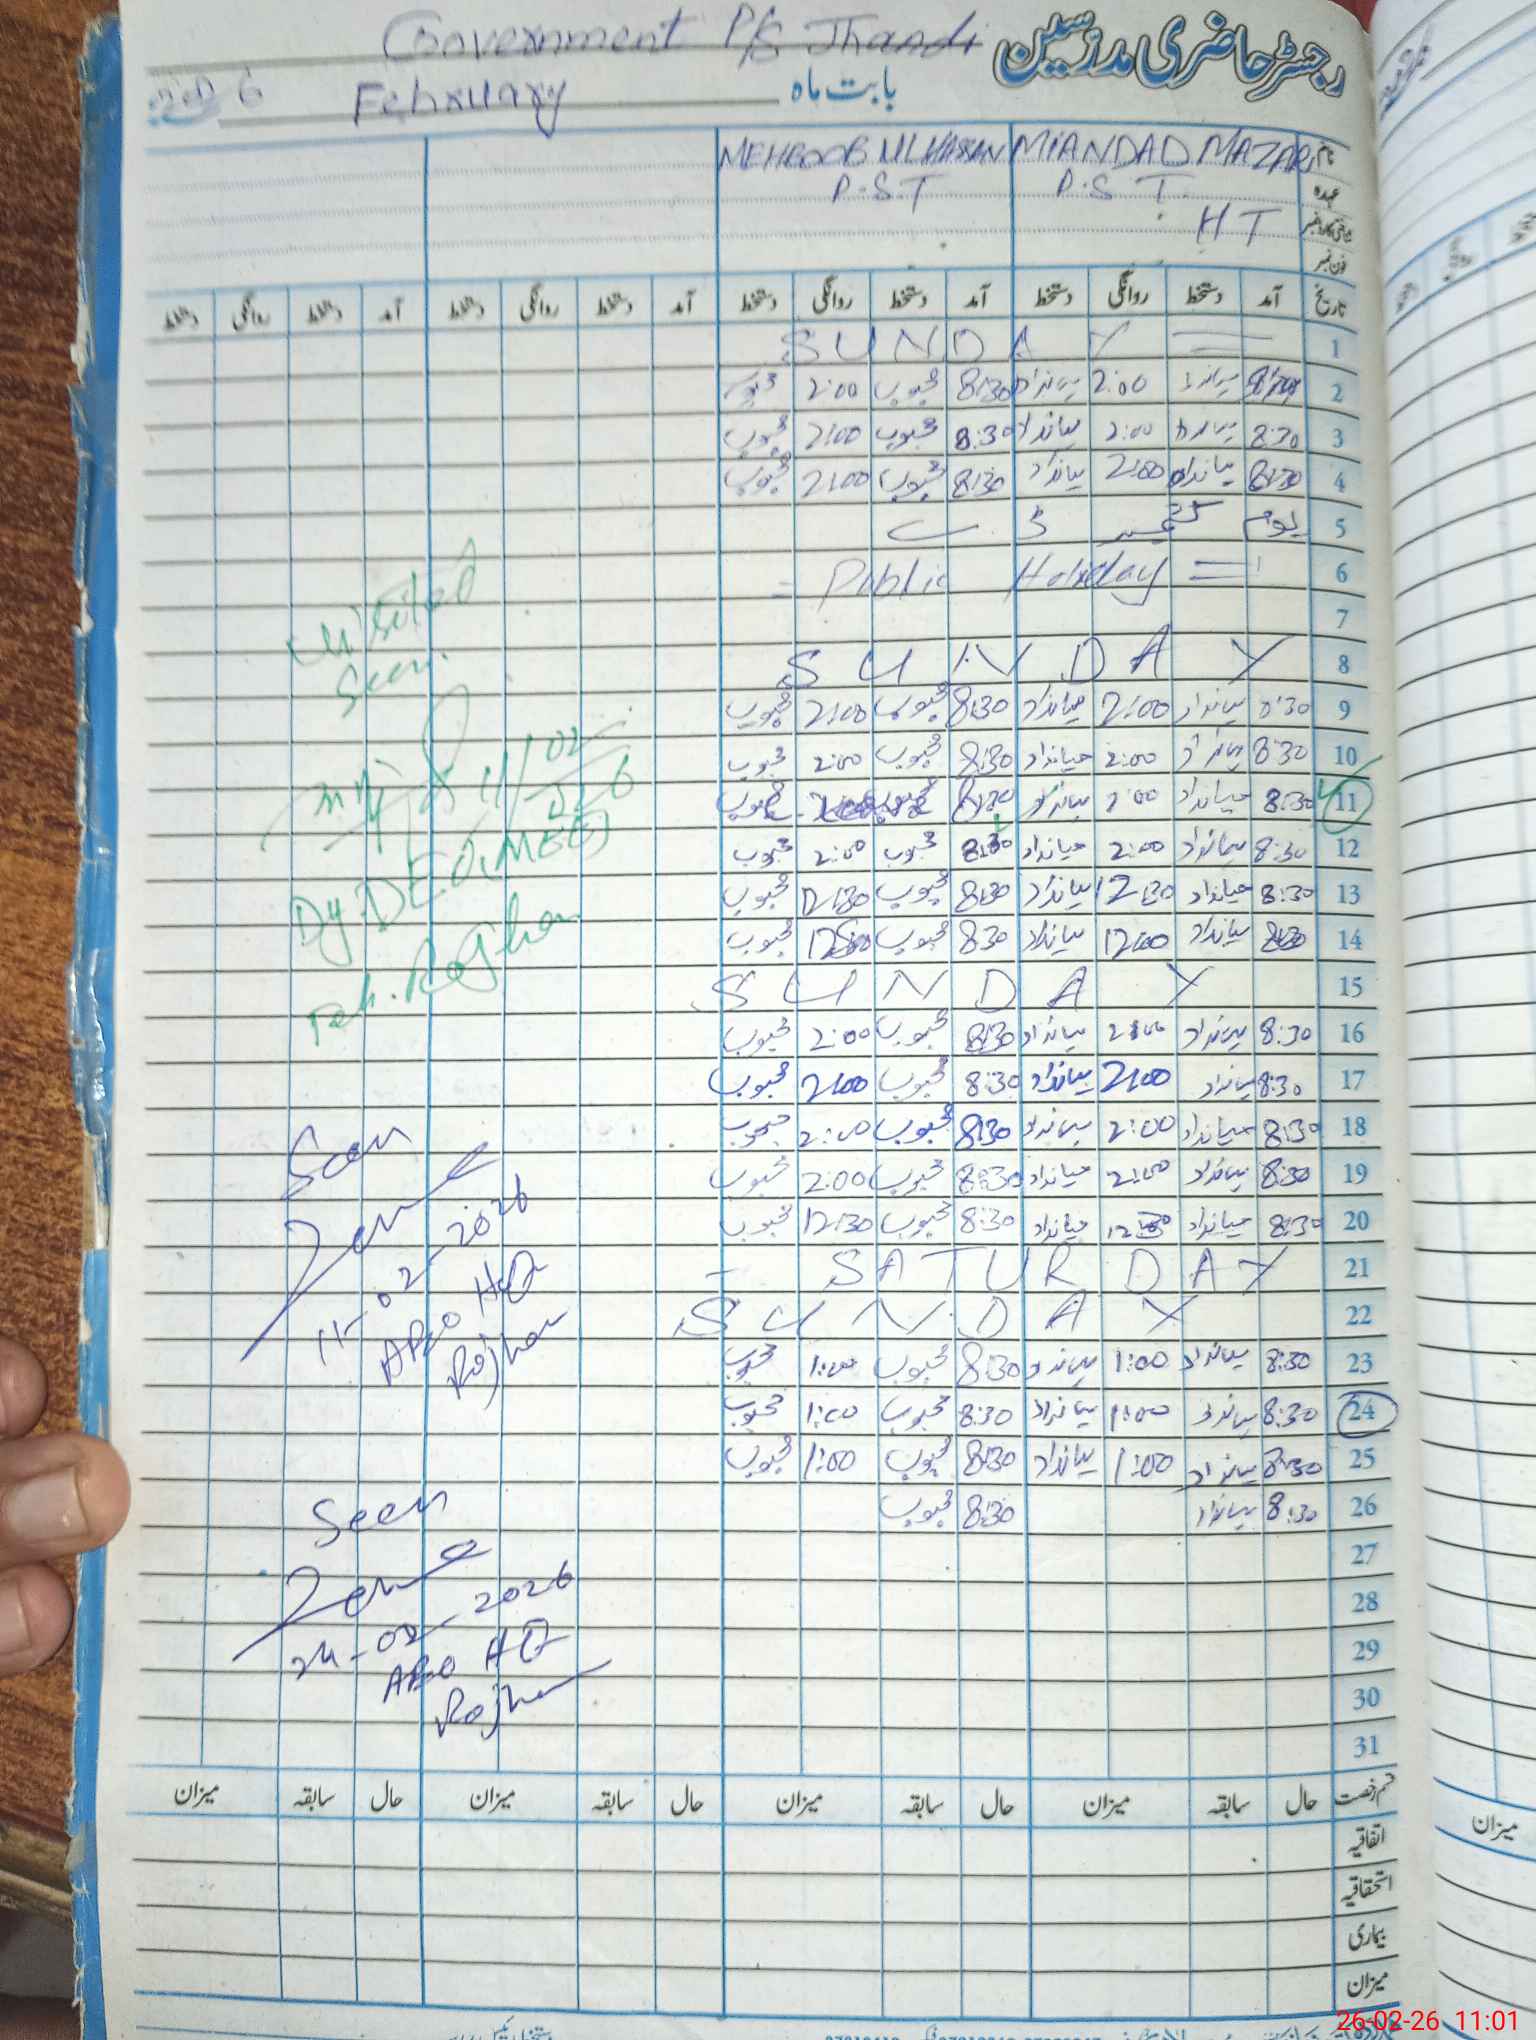 Government P/S Jhandi رجسٹر حاضری مدرسین
بابت ماہ February 2026
نام MIANDAD MAZARI MEHBOOB UL HASSAN
عہدہ P.S.T P.S.T
H T
فون نمبر
تاریخ آمد دستخط روانگی دستخط آمد دستخط روانگی دستخط آمد دستخط روانگی دستخط آمد دستخط روانگی دستخط
1 SUNDAY
2 میانداد 2:00 میانداد 8:30 محبوب 2:00 محبوب
3 8:30 میانداد 2:00 میانداد 8:30 محبوب 2:00 محبوب
4 8:30 میانداد 2:00 میانداد 8:30 محبوب 2:00 محبوب
5 یوم کشمیر ڈے
6 Public Holiday
7
8 SUNDAY
9 8:30 میانداد 2:00 میانداد 8:30 محبوب 2:00 محبوب
10 8:30 میانداد 2:00 میانداد 8:30 محبوب 2:00 محبوب
11 8:30 میانداد 2:00 میانداد 8:30 محبوب 2:00 محبوب
12 8:30 میانداد 2:00 میانداد 8:30 محبوب 2:00 محبوب
13 8:30 میانداد 12:30 میانداد 8:30 محبوب 12:30 محبوب
14 8:30 میانداد 12:00 میانداد 8:30 محبوب 12:00 محبوب
15 SUNDAY
16 8:30 میانداد 2:00 میانداد 8:30 محبوب 2:00 محبوب
17 8:30 میانداد 2:00 میانداد 8:30 محبوب 2:00 محبوب
18 8:30 میانداد 2:00 میانداد 8:30 محبوب 2:00 محبوب
19 8:30 میانداد 2:00 میانداد 8:30 محبوب 2:00 محبوب
20 8:30 میانداد 12:30 میانداد 8:30 محبوب 12:30 محبوب
21 SATURDAY
22 SUNDAY
23 8:30 میانداد 1:00 میانداد 8:30 محبوب 1:00 محبوب
24 8:30 میانداد 1:00 میانداد 8:30 محبوب 1:00 محبوب
25 8:30 میانداد 1:00 میانداد 8:30 محبوب 1:00 محبوب
26 8:30 میانداد 8:30 محبوب
27
28
29
30
31
Visited
Seen.
11/02
Dy. DEO (M-EE)
Teh. Rojhan
Seen
11-02-2026
AEO HQ
Rojhan
Seen
24-02-2026
AEO HQ
Rojhan
قسم رخصت حال سابقہ میزان حال سابقہ میزان حال سابقہ میزان حال سابقہ میزان
اتفاقیہ
استحقاقیہ
بیماری
میزان
میزان
26-02-26 11:01